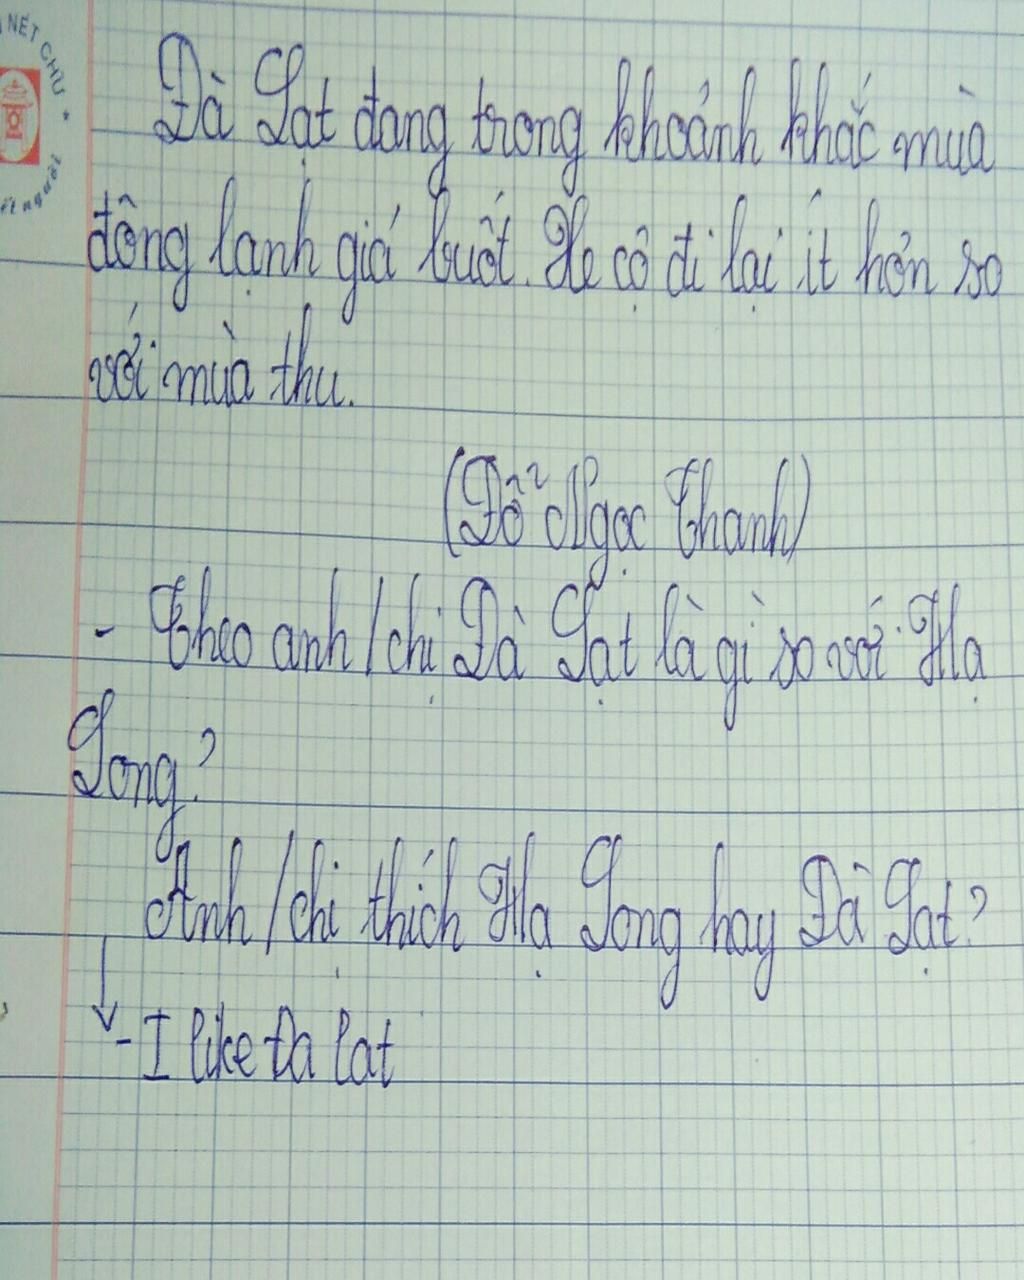 NÉT CHỮ
người
Đà Lạt đang trong khoảnh khắc mùa
đông lạnh giá buốt. Xe cộ đi lại ít hơn so
với mùa thu.
(Đỗ Ngọc Thanh)
- Theo anh/chị Đà Lạt là gì so với Hạ
Long?
Anh/chị thích Hạ Long hay Đà Lạt?
- I like Đa lat